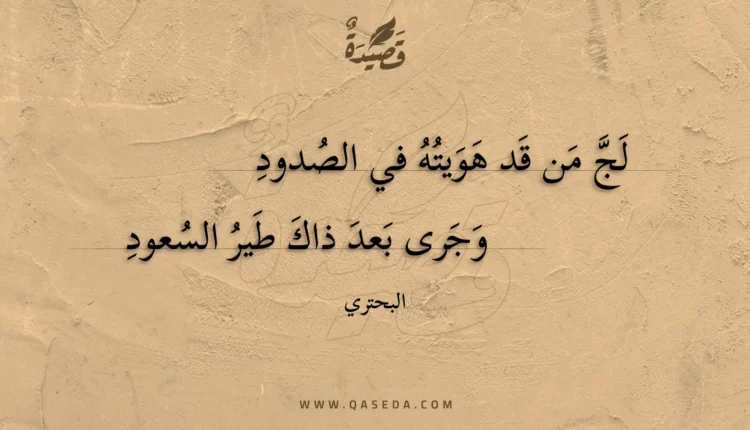 قَصِيدَةٌ
لَجَّ مَن قَد هَوَيتُهُ في الصُدودِ
وَجَرى بَعدَ ذاكَ طَيرُ السُعودِ
البحتري
WWW.QASEDA.COM